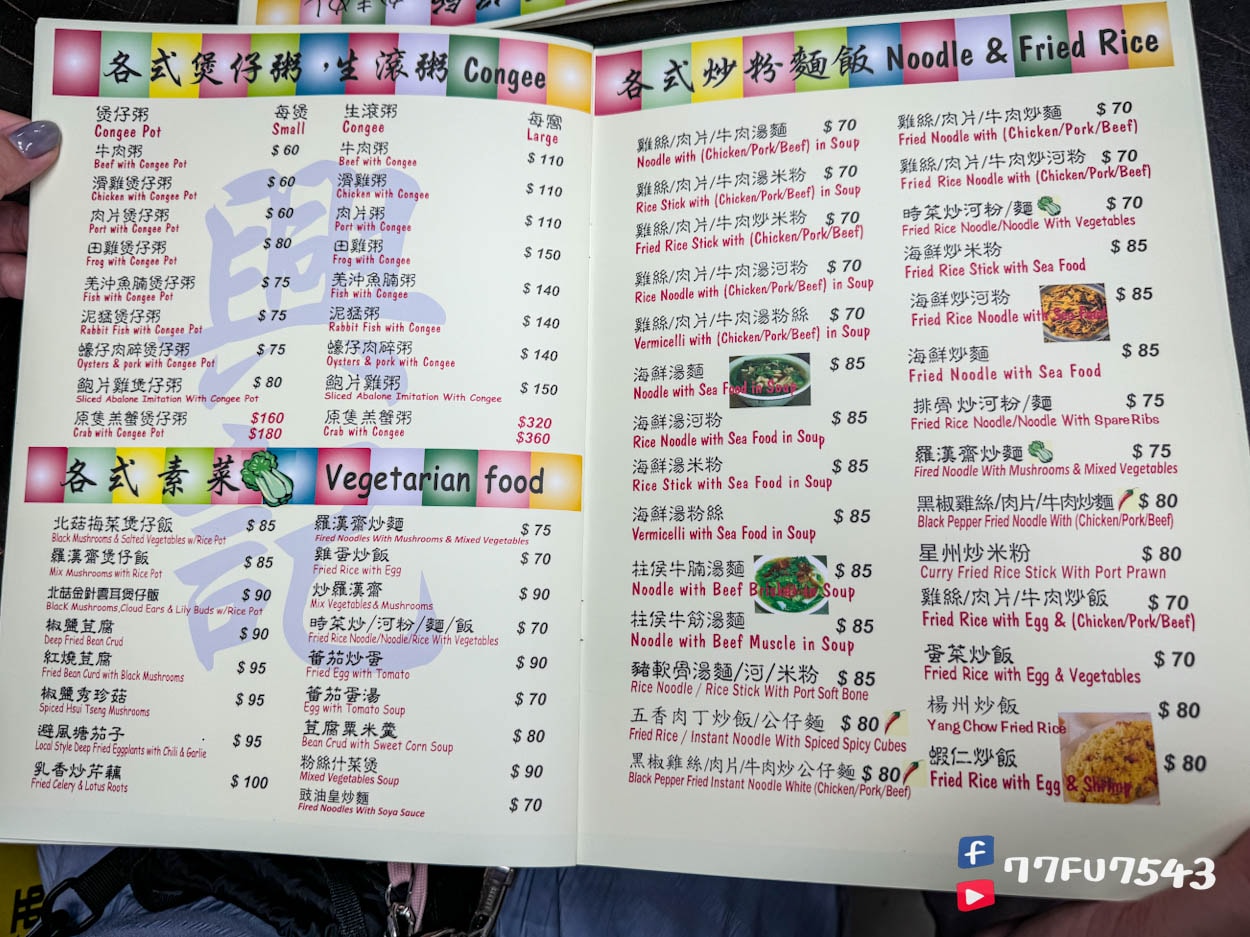 各式煲仔粥，生滾粥 Congee
煲仔粥 每煲
Congee Pot Small
牛肉粥 $ 60
Beef with Congee Pot
滑雞煲仔粥 $ 60
Chicken with Congee Pot
肉片煲仔粥 $ 60
Port with Congee Pot
田雞煲仔粥 $ 80
Frog with Congee Pot
羌沖魚腩煲仔粥 $ 75
Fish with Congee Pot
泥猛煲仔粥 $ 75
Rabbit Fish with Congee Pot
蠔仔肉碎煲仔粥 $ 75
Oysters & pork with Congee Pot
鮑片雞煲仔粥 $ 80
Sliced Abalone Imitation With Congee Pot
原隻羔蟹煲仔粥 $160
Crab with Congee Pot $180
生滾粥 每窩
Congee Large
牛肉粥 $ 110
Beef with Congee
滑雞粥 $ 110
Chicken with Congee
肉片粥 $ 110
Port with Congee
田雞粥 $ 150
Frog with Congee
羌沖魚腩粥 $ 140
Fish with Congee
泥猛粥 $ 140
Rabbit Fish with Congee
蠔仔肉碎粥 $ 140
Oysters & pork with Congee
鮑片雞粥 $ 150
Sliced Abalone Imitation With Congee
原隻羔蟹粥 $320
Crab with Congee $360
興記
各式素菜 Vegetarian food
北菇梅菜煲仔飯 $ 85
Black Mushrooms & Salted Vegetables w/Rice Pot
羅漢齋煲仔飯 $ 85
Mix Mushrooms with Rice Pot
北菇金針雲耳煲仔飯 $ 90
Black Mushrooms,Cloud Ears & Lily Buds w/Rice Pot
椒鹽荳腐 $ 90
Deep Fried Bean Crud
紅燒荳腐 $ 95
Fried Bean Curd with Black Mushrooms
椒鹽秀珍菇 $ 95
Spiced Hsui Tseng Mushrooms
避風塘茄子 $ 95
Local Style Deep Fried Eggplants with Chili & Garlie
乳香炒芹藕 $ 100
Fried Celery & Lotus Roots
羅漢齋炒麵 $ 75
Fired Noodles With Mushrooms & Mixed Vegetables
雞蛋炒飯 $ 70
Fried Rice with Egg
炒羅漢齋 $ 90
Mix Vegetables & Mushrooms
時菜炒/河粉/麵/飯 $ 70
Fried Rice Noodie/Noodle/Rice With Vegetables
蕃茄炒蛋 $ 90
Fried Egg with Tomato
蕃茄蛋湯 $ 70
Egg with Tomato Soup
荳腐粟米羹 $ 80
Bean Crud with Sweet Corn Soup
粉絲什菜煲 $ 90
Mixed Vegetables Soup
豉油皇炒麵 $ 70
Fired Noodles With Soya Sauce
各式炒粉麵飯 Noodle & Fried Rice
雞絲/肉片/牛肉湯麵 $ 70
Noodle with (Chicken/Pork/Beef) in Soup
雞絲/肉片/牛肉湯米粉 $ 70
Rice Stick with (Chicken/Pork/Beef) in Soup
雞絲/肉片/牛肉炒米粉 $ 70
Fried Rice Stick with (Chicken/Pork/Beef)
雞絲/肉片/牛肉湯河粉 $ 70
Rice Noodle with (Chicken/Pork/Beef) in Soup
雞絲/肉片/牛肉湯粉絲 $ 70
Vermicelli with (Chicken/Pork/Beef) in Soup
海鮮湯麵 $ 85
Noodle with Sea Food in Soup
海鮮湯河粉 $ 85
Rice Noodle with Sea Food in Soup
海鮮湯米粉 $ 85
Rice Stick with Sea Food in Soup
海鮮湯粉絲 $ 85
Vermicelli with Sea Food in Soup
柱侯牛腩湯麵 $ 85
Noodle with Beef in Soup
柱侯牛筋湯麵 $ 85
Noodle with Beef Muscle in Soup
豬軟骨湯麵/河/米粉 $ 85
Rice Noodle / Rice Stick With Port Soft Bone
五香肉丁炒飯/公仔麵 $ 80
Fried Rice / Instant Noodle With Spiced Spicy Cubes
黑椒雞絲/肉片/牛肉炒公仔麵 $ 80
Black Pepper Fried Instant Noodle White (Chicken/Pork/Beef)
雞絲/肉片/牛肉炒麵 $ 70
Fried Noodle with (Chicken/Pork/Beef)
雞絲/肉片/牛肉炒河粉 $ 70
Fried Rice Noodle with (Chicken/Pork/Beef)
時菜炒河粉/麵 $ 70
Fried Rice Noodle/Noodle With Vegetables
海鮮炒米粉 $ 85
Fried Rice Stick with Sea Food
海鮮炒河粉 $ 85
Fried Rice Noodle with Sea Food
海鮮炒麵 $ 85
Fried Noodle with Sea Food
排骨炒河粉/麵 $ 75
Fried Rice Noodle/Noodle With Spare Ribs
羅漢齋炒麵 $ 75
Fired Noodle With Mushrooms & Mixed Vegetables
黑椒雞絲/肉片/牛肉炒麵 $ 80
Black Pepper Fried Noodle With (Chicken/Pork/Beef)
星州炒米粉 $ 80
Curry Fried Rice Stick With Port Prawn
雞絲/肉片/牛肉炒飯 $ 70
Fried Rice with Egg & (Chicken/Pork/Beef)
蛋菜炒飯 $ 70
Fried Rice with Egg & Vegetables
楊州炒飯 $ 80
Yang Chow Fried Rice
蝦仁炒飯 $ 80
Fried Rice with Egg & Shrimp
77FU7543